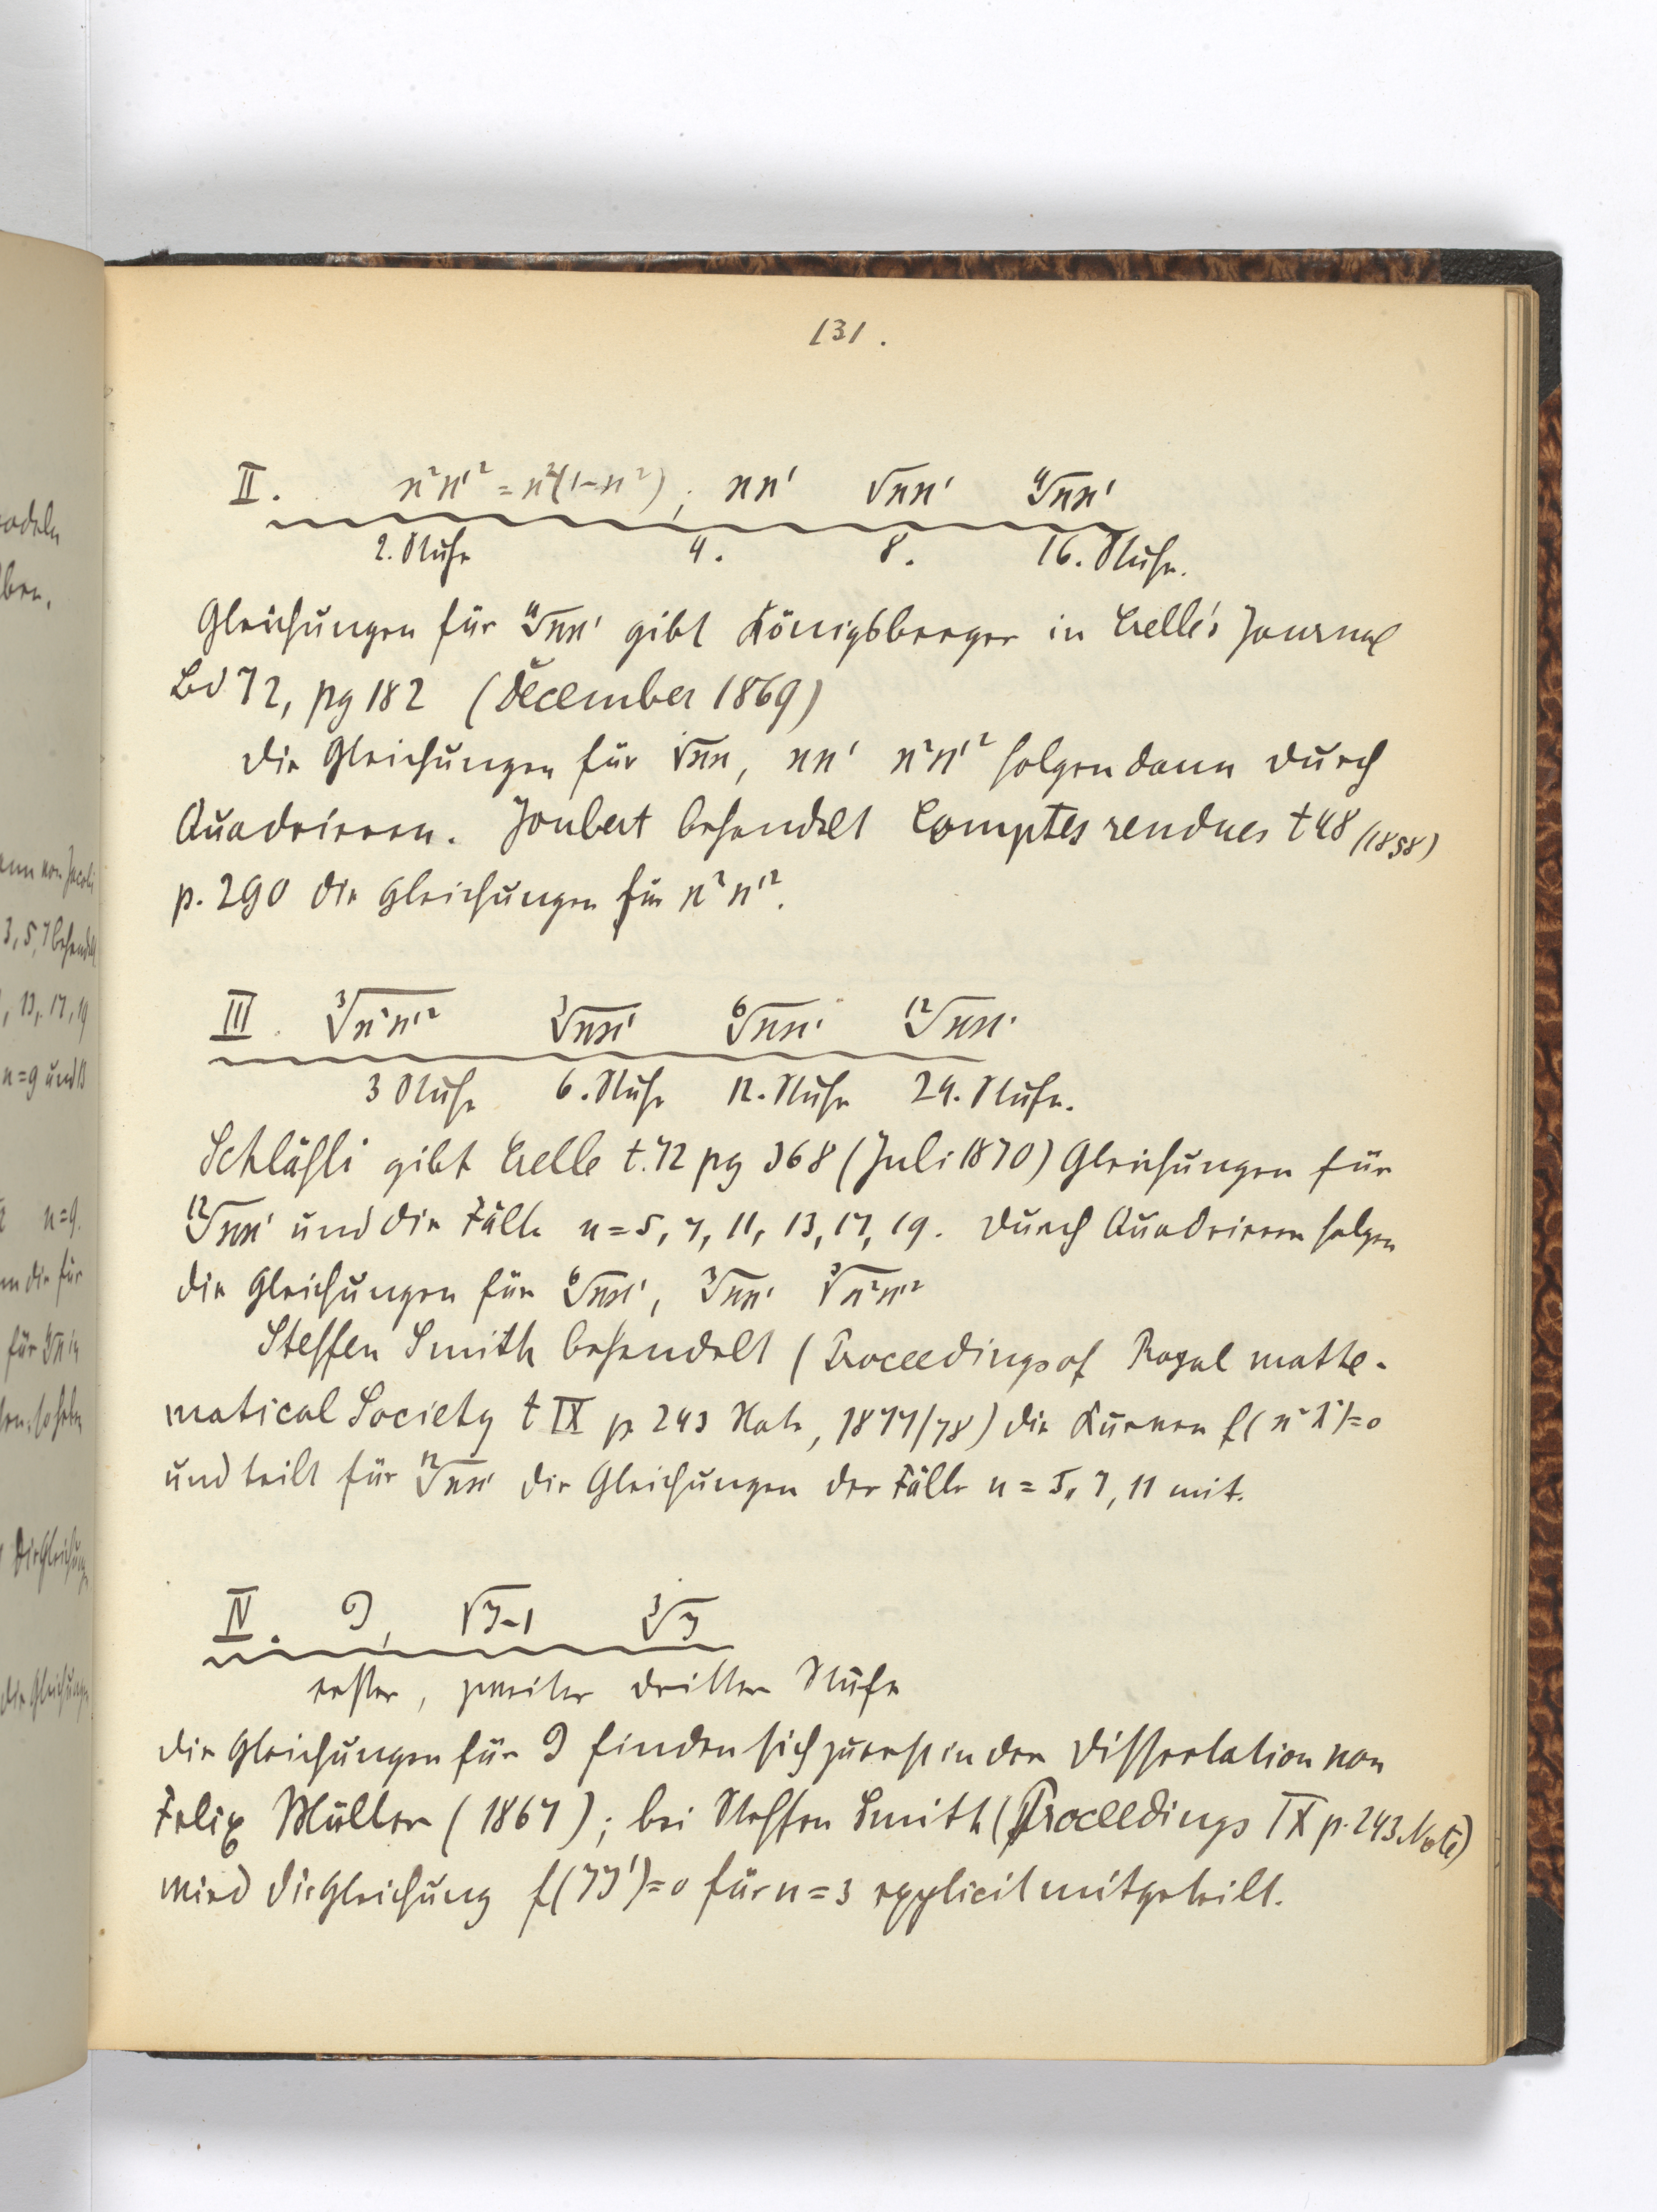 131.
II. ϰ²ϰ'² = ϰ²(1-ϰ²); ϰϰ' √ϰϰ' ∜ϰϰ'
2. Stufe 4. 8. 16. Stufe.
Gleichungen für ∜ϰϰ' gibt Königsberger in Crelle's Journal
Bd 72, pg 182 (December 1869)
Die Gleichungen für √ϰϰ, ϰϰ' ϰ²ϰ'² folgen dann durch
Quadrieren. Joubert behandelt Comptes rendues t 48 (1858)
p. 290 die Gleichungen für ϰ²ϰ'².
III. ∛ϰ²ϰ'² ∛ϰϰ' ⁶√ϰϰ' ¹²√ϰϰ'
3 Stufe 6. Stufe 12. Stufe 24. Stufe.
Schläfli gibt Crelle t. 72 pg 368 (Juli 1870) Gleichungen für
¹²√ϰϰ' und die Fälle n = 5, 7, 11, 13, 17, 19. Durch Quadrieren folgen
die Gleichungen für ⁶√ϰϰ', ∛ϰϰ' ∛ϰ²ϰ'²
Steffen Smith behandelt (Proceedings of Royal mathe-
matical Society t IX p 243 Note, 1877/78) die Kurven f(ϰ² λ²)=0
und teilt für ¹²√ϰϰ' die Gleichungen der Fälle n = 5, 7, 11 mit.
IV. J, √J-1 ∛J
erster, zweiter dritter Stufe
Die Gleichungen für J finden sich zuerst in der Dissertation von
Felix Müller (1867); bei Steffen Smith (Proceedings IX p. 243 Note)
wird die Gleichung f(JJ')=0 für n=3 explicit mitgeteilt.